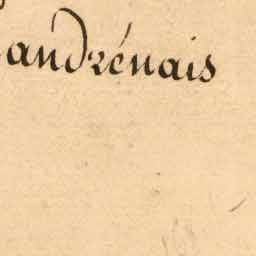 andrénais